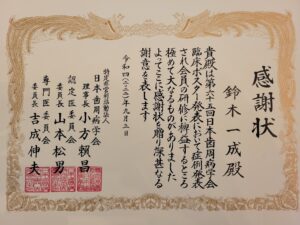 感謝状
鈴木一成殿
貴殿は第六十五回日本歯周病学会
臨床ポスター発表において症例発表
され会員の研修に裨益するところ
極めて大なるものがありました
よってここに感謝状を贈り深甚なる
謝意を表します
令和四(二〇二二)年九月三日
特定非営利活動法人
日本歯周病学会
理事長 小方頼昌
認定医委員会
委員長 山本松男
専門医委員会
委員長 吉成伸夫